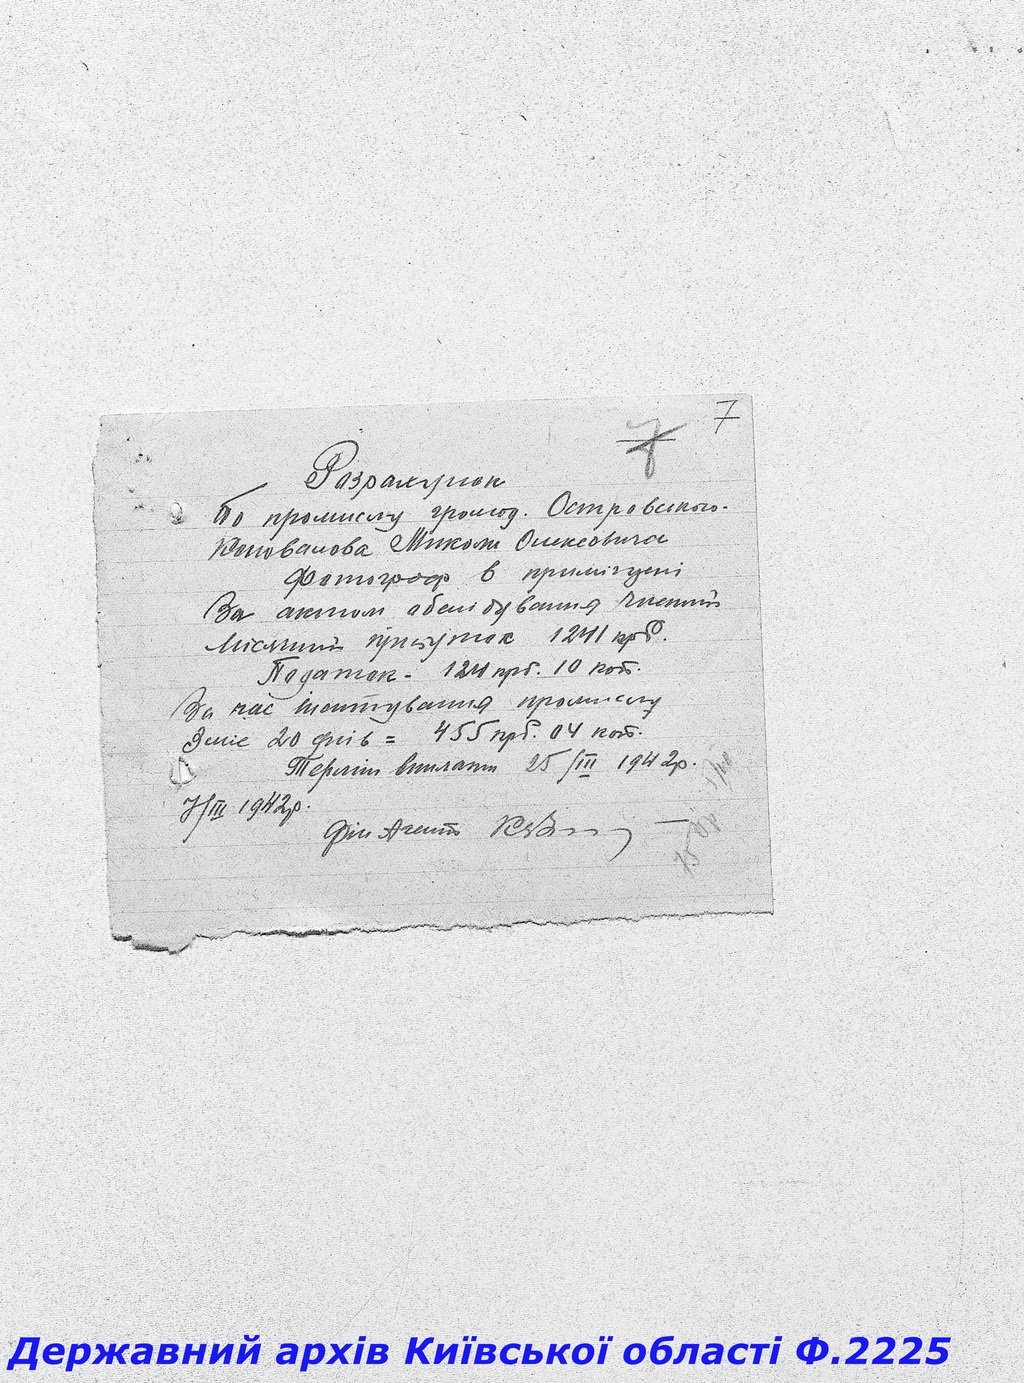 7
7
Розрахунок
По промислу громод. Островського-
Коновалова Миколи Олексовича
Фотограф в приміщені
За актом обслідування чистий
місячний прибуток 1241 крб.
Податок - 124 крб. 10 коп.
За час існування промислу
20 днів = 455 крб. 04 коп.
Термін виплати 25/III 1942р.
7/III 1942р.
Фін Агент
Державний архів Київської області Ф.2225